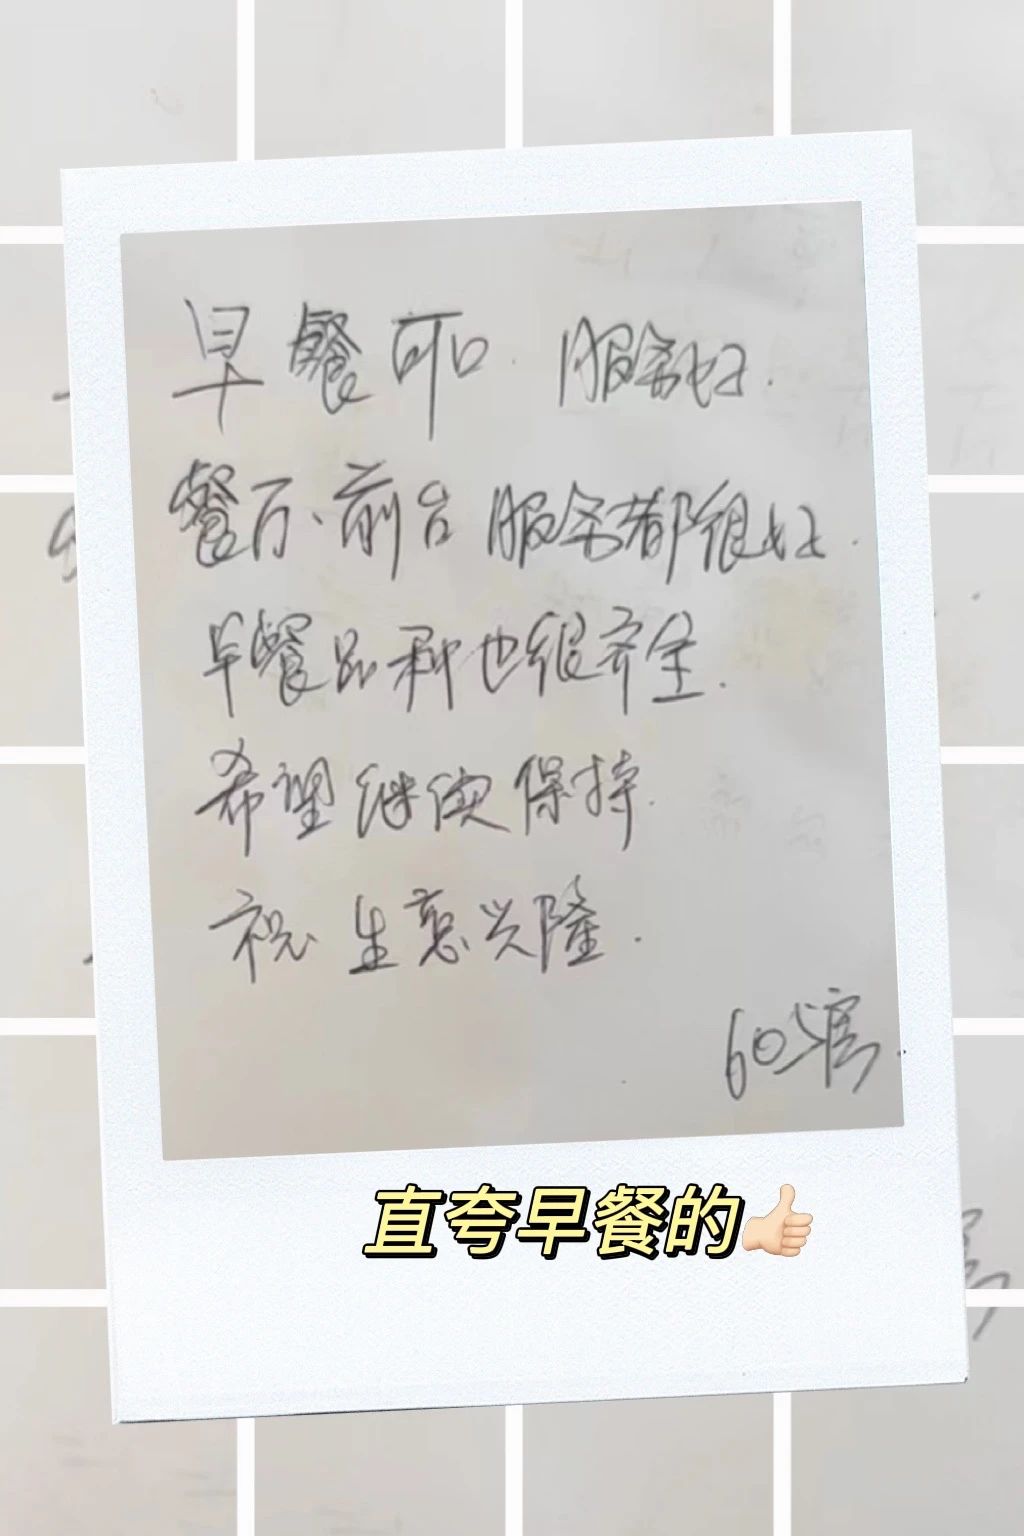 早餐可口.服务好.
餐厅、前台服务都很好.
早餐品种也很齐全.
希望继续保持.
祝生意兴隆.
605房.
直夸早餐的👍🏻